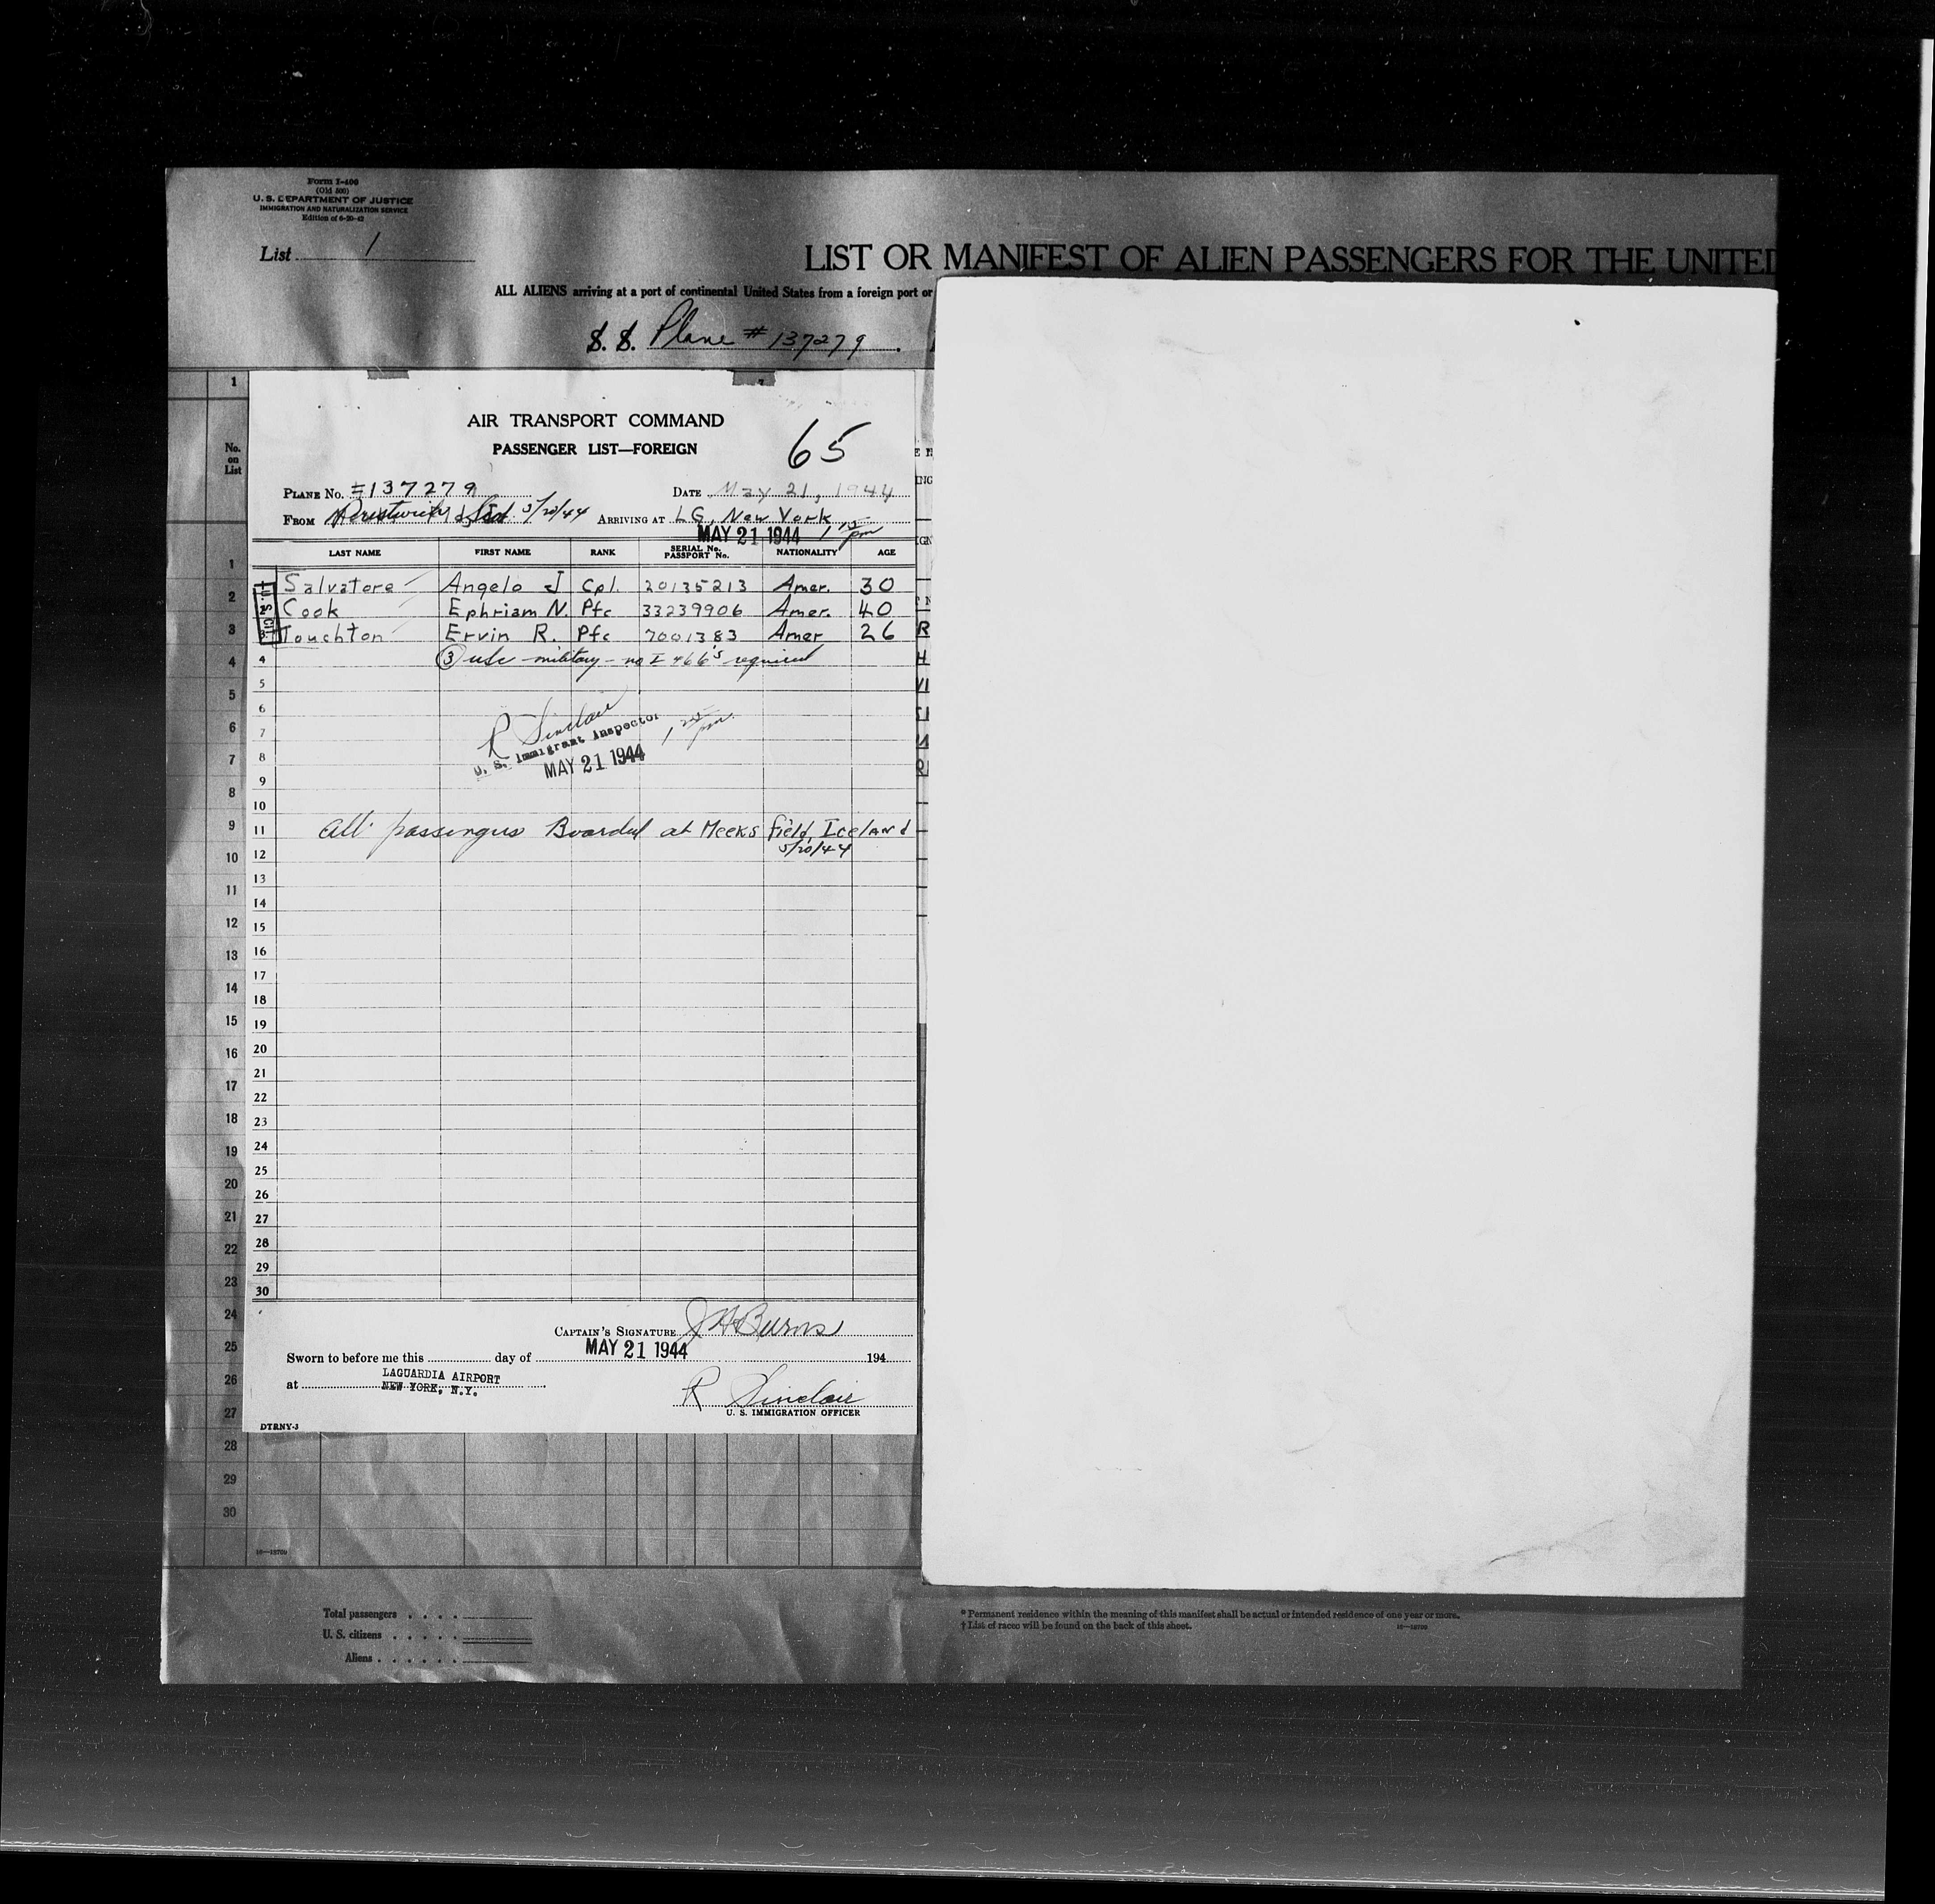 Form I-400
(Old 500)
U. S. DEPARTMENT OF JUSTICE
IMMIGRATION AND NATURALIZATION SERVICE
Edition of 6-20-42
List 1
LIST OR MANIFEST OF ALIEN PASSENGERS FOR THE UNITED
ALL ALIENS arriving at a port of continental United States from a foreign port or
S. S. Plane # 137279
AIR TRANSPORT COMMAND
PASSENGER LIST—FOREIGN
65
PLANE No. #137279 DATE May 21, 1944
FROM Prestwick 5/20/44 ARRIVING AT LG, New York
MAY 21 1944 1 15 pm
No. on List
LAST NAME FIRST NAME RANK SERIAL No. PASSPORT No. NATIONALITY AGE
U.S. CIT.
Salvatore Angelo J Cpl. 20135213 Amer. 30
Cook Ephriam N. Pfc 33239906 Amer. 40
Touchton Ervin R. Pfc 7001383 Amer 26
4 (3) military - no I 466's required
5
6
7
8
R Sinclair
U. S. Immigrant Inspector
MAY 21 1944
9
10
11 All passengers Boarded at Meeks field, Iceland
12 5/20/44
13
14
15
16
17
18
19
20
21
22
23
24
25
26
27
28
29
30
CAPTAIN'S SIGNATURE J H Burns
Sworn to before me this day of MAY 21 1944 194
at LAGUARDIA AIRPORT
NEW YORK, N.Y.
R Sinclair
U. S. IMMIGRATION OFFICER
DTRNY-3
1
1
2
3
4
5
6
7
8
9
10
11
12
13
14
15
16
17
18
19
20
21
22
23
24
25
26
27
28
29
30
Total passengers
U. S. citizens
Aliens
* Permanent residence within the meaning of this manifest shall be actual or intended residence of one year or more.
† List of races will be found on the back of this sheet.